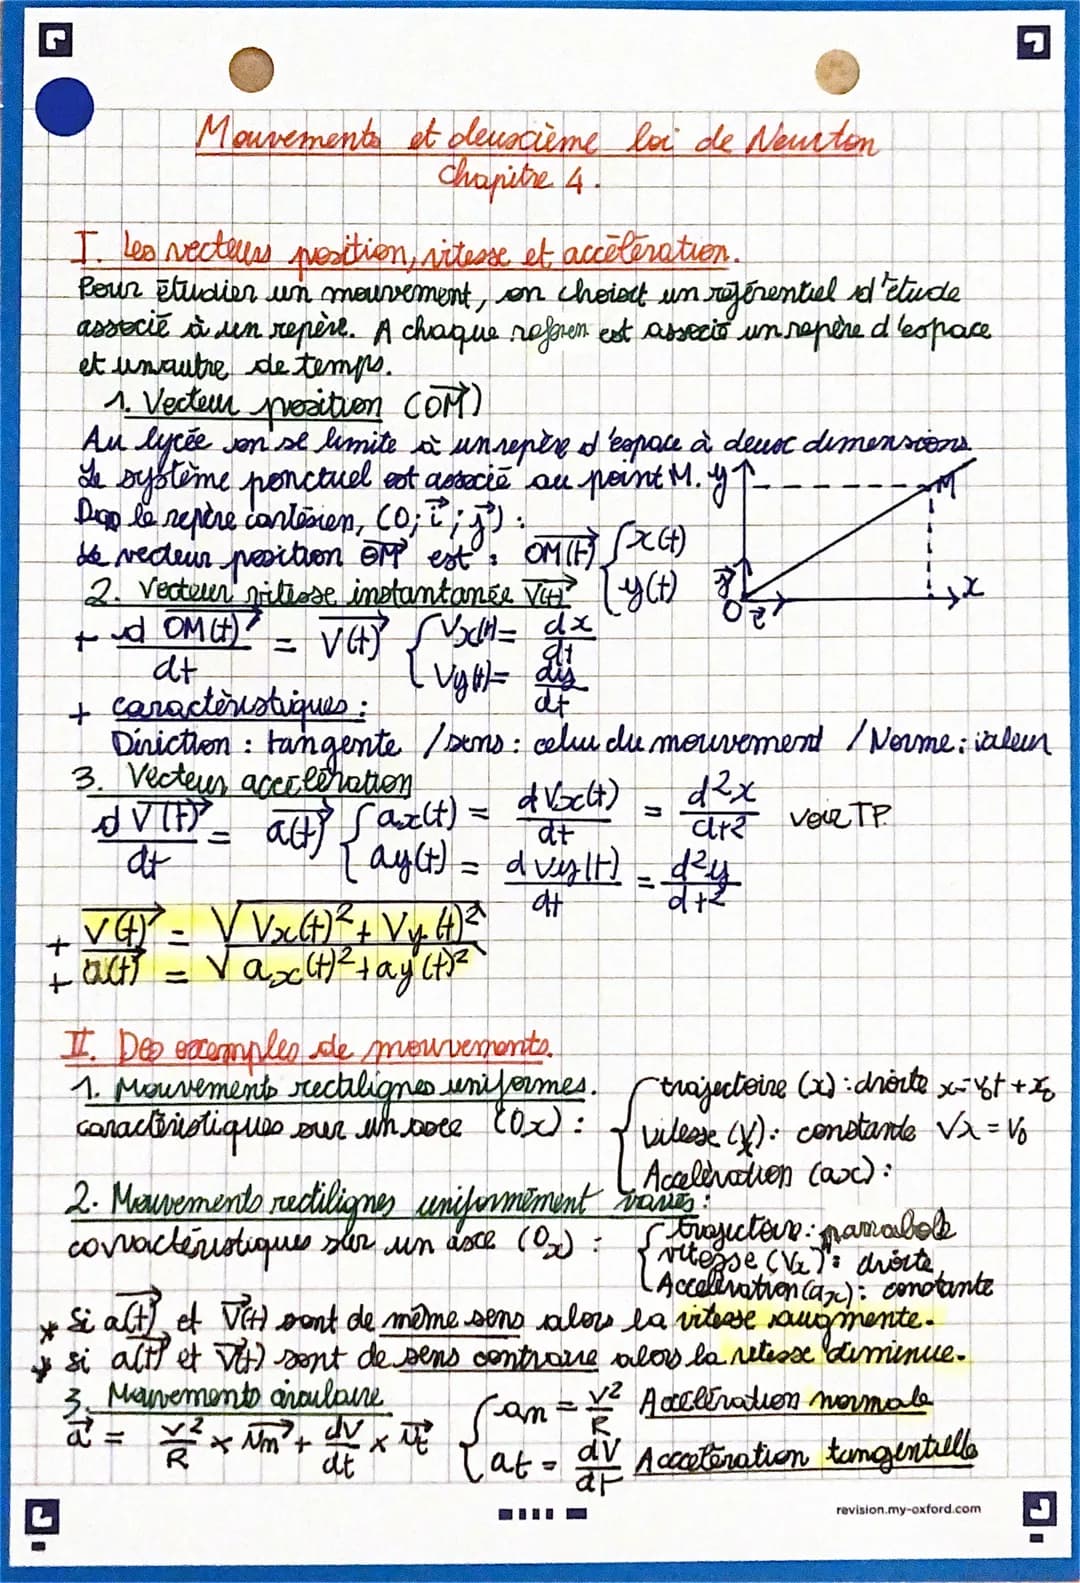 Mouvements et deuxième loi de Newton
Chapitre 4.
I. Les vecteurs position, vitesse et accélération.
Pour étudier un mouvement, on choisit un référentiel d'étude
associé à un repère. A chaque referen est associé un repère d'espace
et un autre de temps.
1. Vecteur position (OM)
Au lycée on se limite à un repère d'espace à deux dimensions.
Le système ponctuel est associé au point M.
y M
le repère cartésien, (O; i ; j) :
Le vecteur position OM est : OM(t) { x(t)
y(t)
j O i x
2. Vecteur vitesse instantanée V(t)
+ d OM(t) / dt = V(t) { Vx(t) = dx/dt
Vy(t) = dy/dt
+ caractèristiques :
Diriction : tangente / sens : celui du mouvement / Norme : valeur
3. Vecteur acceleration
d V(t) / dt = a(t) { ax(t) = dVx(t)/dt = d²x/dt² voir TP.
ay(t) = dVy(t)/dt = d²y/dt²
+ V(t) = √Vx(t)² + Vy(t)²
+ a(t) = √ax(t)² + ay(t)²
II. Des exemples de mouvements.
1. Mouvements rectilignes uniformes.
caractéristiques sur un axe (Ox) :
{ trajectoire (x) : droite x = v₀t + x₀
vitesse (V) : constante Vx = V₀
Acceleration (ax) :
2. Mouvements rectilignes uniformément variés :
caractéristiques sur un axe (Ox) :
{ trajectoire : parabole
vitesse (Vx) : droite
Acceleration (ax) : constante
* Si a(t) et V(t) sont de même sens alors la vitesse augmente.
* si a(t) et V(t) sont de sens contraire alors la vitesse diminue.
3. Mouvements circulaire
a = v²/R × Nn + dV/dt × Nt { an = v²/R Accélération normale
at = dV/dt Accélération tangentielle
revision.my-oxford.com